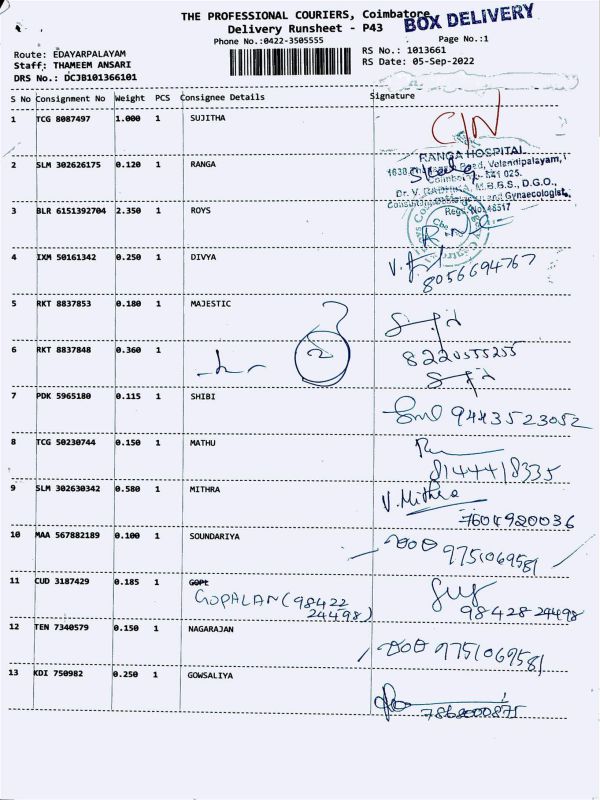 THE PROFESSIONAL COURIERS, Coimbatore
BOX DELIVERY
Delivery Runsheet - P43
Phone No.:0422-3505555
Page No.:1
Route: EDAYARPALAYAM
RS No.: 1013661
Staff: THAMEEM ANSARI
RS Date: 05-Sep-2022
DRS No.: DCJB101366101
S No Consignment No Weight PCS Consignee Details Signature
1 TCG 8087497 1.000 1 SUJITHA
2 SLM 302626175 0.120 1 RANGA
RANGA HOSPITAL
Road, Velandipalayam,
641 025.
Dr. V. M.B.B.S., D.G.O.,
Gynaecologist
3 BLR 6151392704 2.350 1 ROYS
4 IXM 50161342 0.250 1 DIVYA
8056694767
5 RKT 8837853 0.180 1 MAJESTIC
6 RKT 8837848 0.360 1
8220555255
7 PDK 5965180 0.115 1 SHIBI
9443523052
8 TCG 50230744 0.150 1 MATHU
8144418335
9 SLM 302630342 0.580 1 MITHRA
V. Mithra
7604920036
10 MAA 567882189 0.100 1 SOUNDARIYA
9751069581
11 CUD 3187429 0.185 1 GOPT
GOPALAN (98422
24498)
98428 24498
12 TEN 7340579 0.150 1 NAGARAJAN
9751069581
13 KDI 750982 0.250 1 GOWSALIYA
7868000875